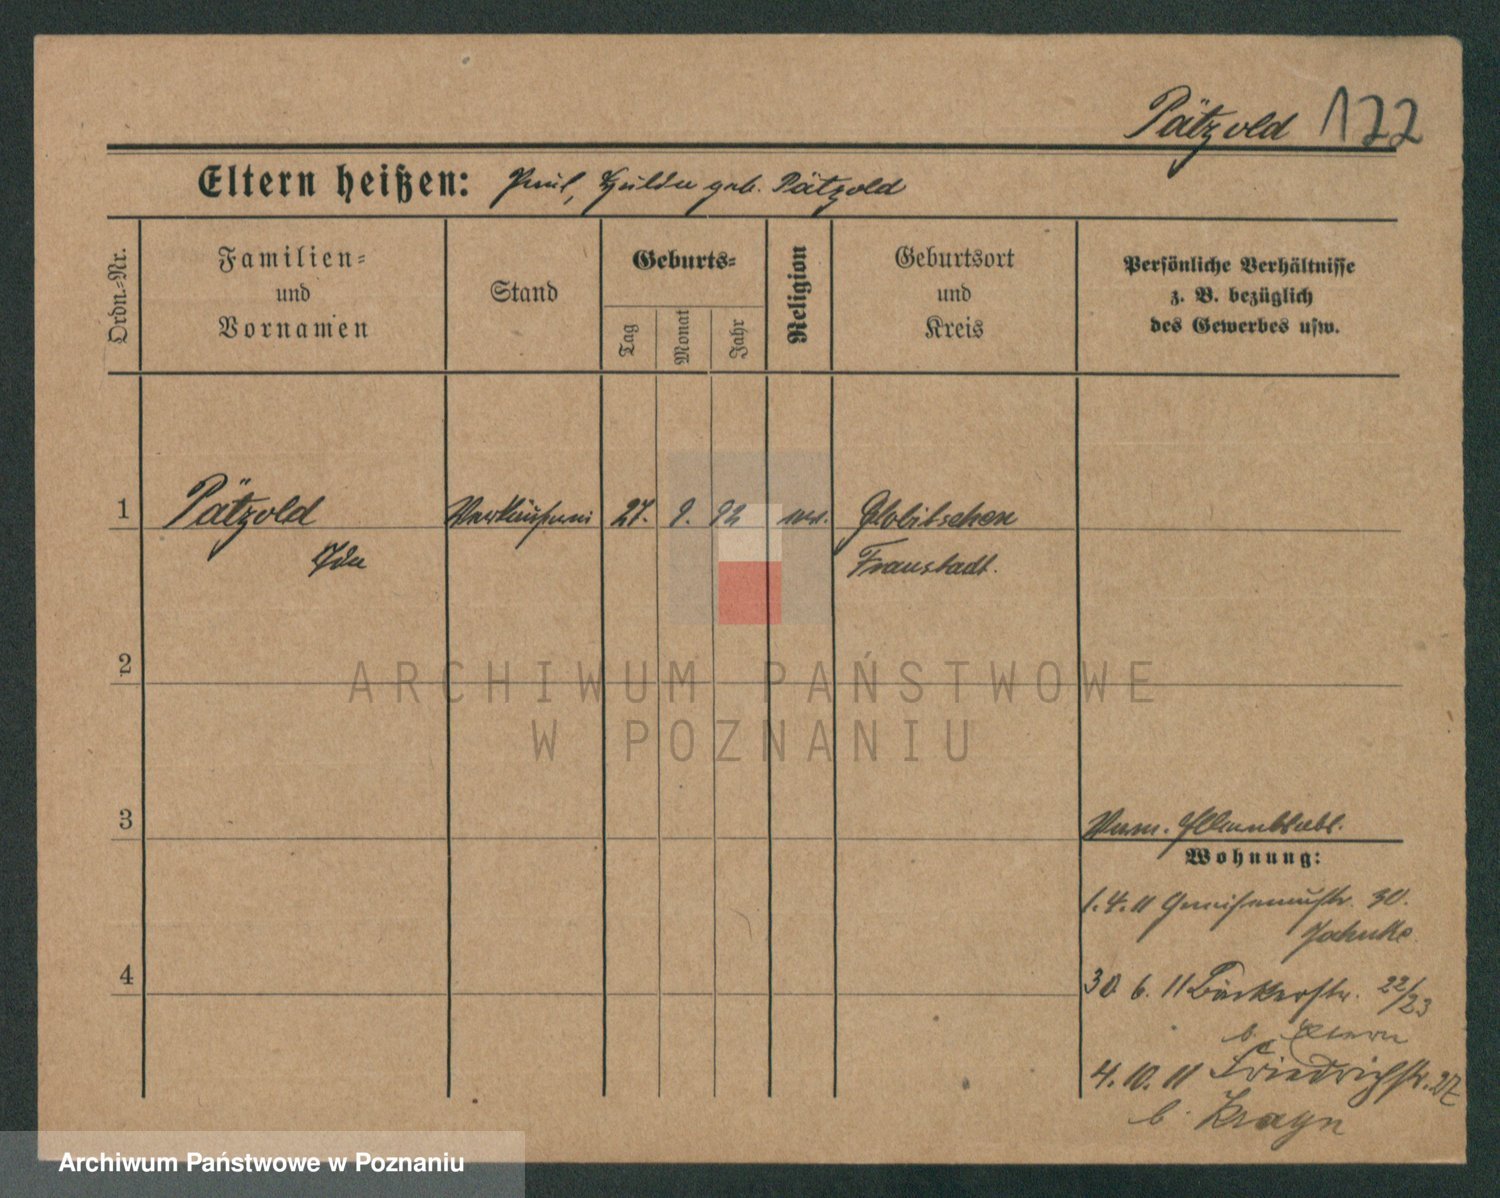 Pätzold 122
Eltern heißen: Paul, Hulda geb. Pätzold
Ordn.=Nr.
Familien=
und
Vornamen
Stand
Geburts=
Tag
Monat
Jahr
Religion
Geburtsort
und
Kreis
Persönliche Verhältnisse
z. B. bezüglich
des Gewerbes usw.
1 Pätzold Verkäuferin 27. 9. 92 ev. Globitschen
Ida Fraustadt.
2
ARCHIWUM PAŃSTWOWE
W POZNANIU
3
Wohnung:
1. 4. 11 Gneisenaustr. 30.
Jahnke
4
30. 6. 11 Bäckerstr. 22/23
b. Eltern
4. 10. 11 Friedrichstr. 27
b. Krayn
Archiwum Państwowe w Poznaniu